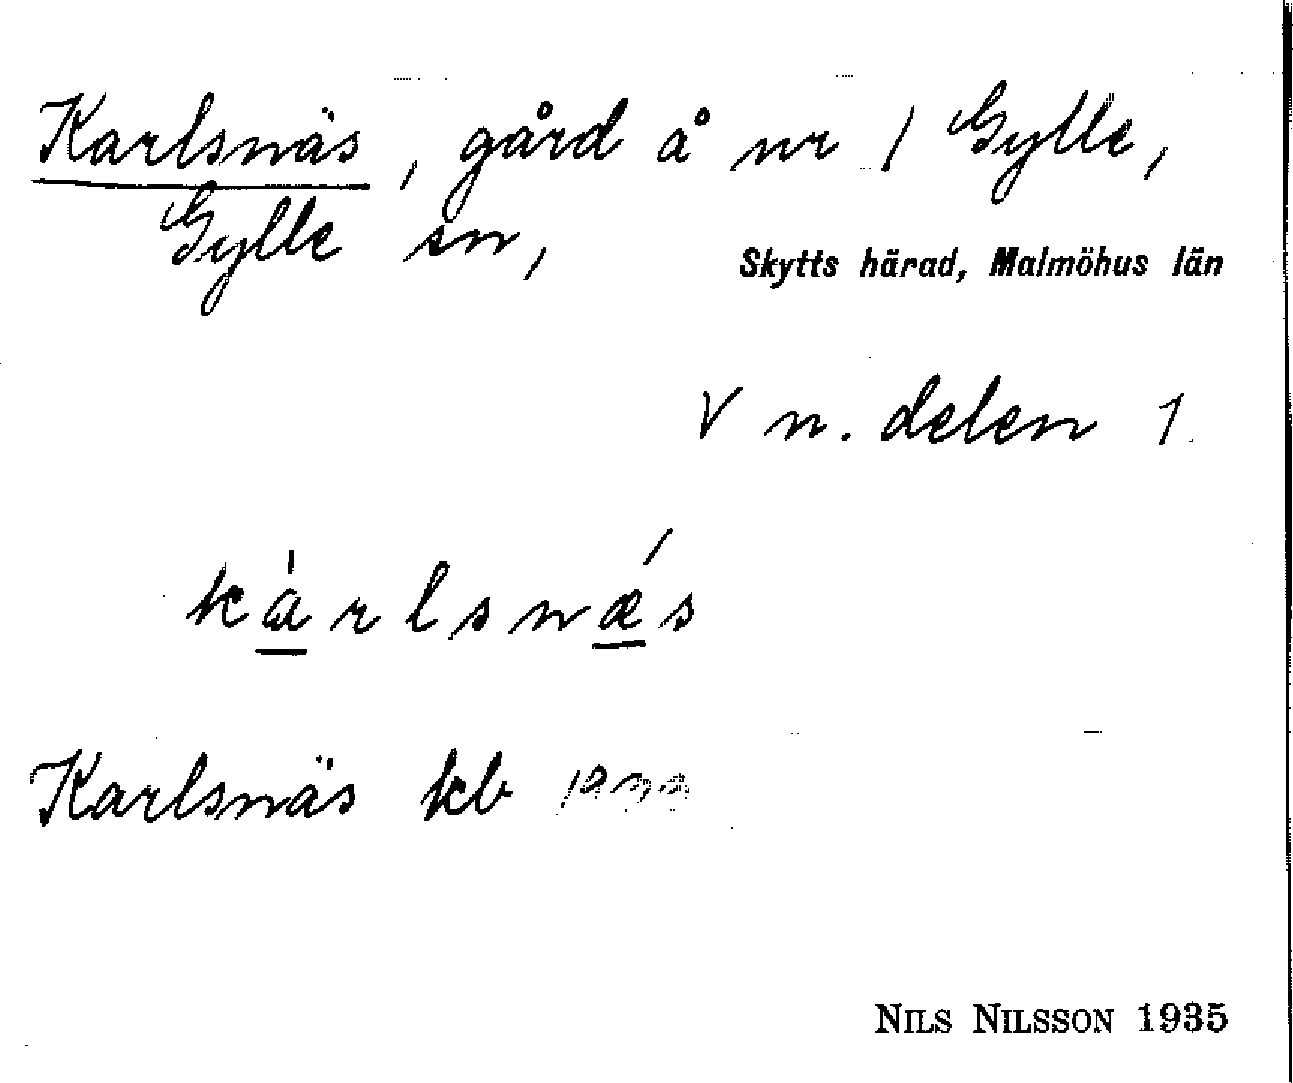 Karlsnäs, gård å nr 1 Gylle,
Gylle sn,
Skytts härad, Malmöhus län
V n. delen 1.
kàrlsnǽs
Karlsnäs kb
NILS NILSSON 1935